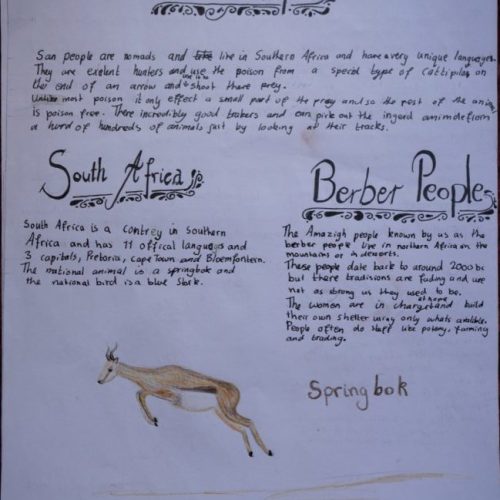 San people are nomads and live in Southern Africa and have a very unique languages.
They are exelent hunters and use the poison from a special type of Cattipilar on
the end of an arrow and use it to shoot there prey.
Unlike most poison it only effect a small part of the prey and so the rest of the animal
is poison free. There incredibly good trakers and can pick out the ingerd animal from
a herd of hundreds of animals just by looking at their tracks.
South Africa
South Africa is a contrey in southern
Africa and has 11 offical languags and
3 capitals, Pretoria, cape Town and Bloemfontern.
The national animal is a springbok and
the national bird is a blue Stork.
Berber People
The Amazigh people known by us as the
berber people live in northern Africa on the
mountains or in deserts.
These people date back to around 2000 bc
but there tradisions are fading and are
not as strong as they used to be.
The women are in charge at home and build
their own shelter using only whats avalible.
People often do stuff like potery, farming
and trading.
Springbok